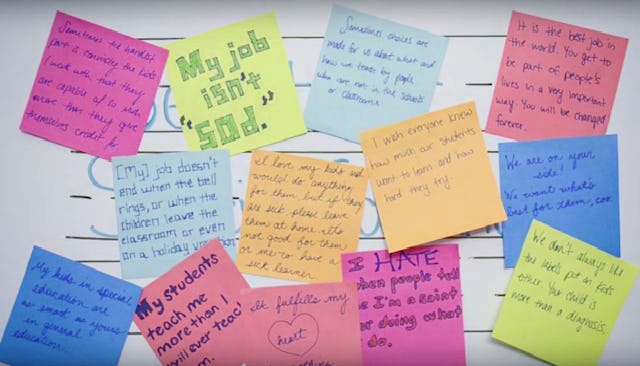 Sometimes the hardest
part is convincing the kids
I work with that they
are capable of so much
more than they give
themselves credit for
My job
isn't
"SOD."
Sometimes choices are
made for us about what and
how we teach by people
who are not in the schools
or classrooms
It is the best job in
the world. You get to
be part of people's
lives in a very important
way. You will be changed
forever.
[My] job doesn't
end when the bell
rings, or when the
children leave the
classroom or even
on a holiday
I love my kids and
would do anything
for them but if they
are sick please leave
them at home. It's
not good for them
or me to have a
sick learner.
I wish everyone knew
how much our students
want to learn and how
hard they try.
We are on your
side!
We want what's
best for them, too
My kids in special
education are
as smart as yours
in general
education.
My students
teach me
more than I
will ever teach
them.
It fulfills my
heart
I HATE
when people tell
me I'm a saint
for doing what
I do.
We don't always like
the labels put on kids
either. Your child is
more than a diagnosis.